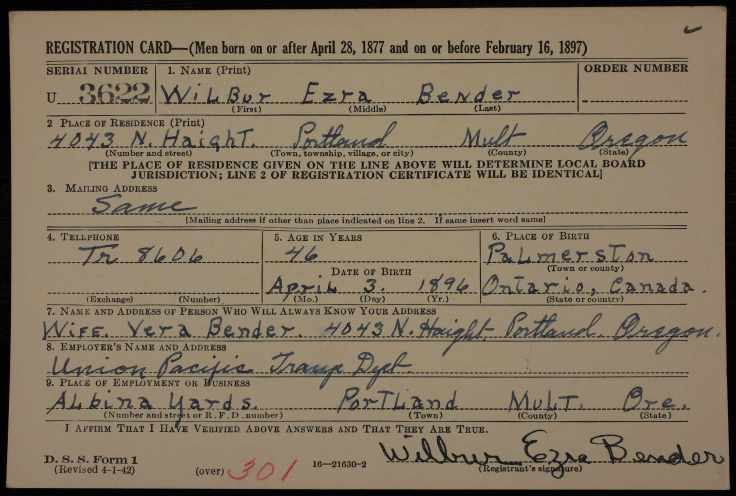 REGISTRATION CARD—(Men born on or after April 28, 1877 and on or before February 16, 1897)
SERIAL NUMBER 1. NAME (Print) ORDER NUMBER
U 3622 Wilbur Ezra Bender
(First) (Middle) (Last)
2 PLACE OF RESIDENCE (Print)
4043 N. Haight. Portland Mult Oregon
(Number and street) (Town, township, village, or city) (County) (State)
[THE PLACE OF RESIDENCE GIVEN ON THE LINE ABOVE WILL DETERMINE LOCAL BOARD
JURISDICTION; LINE 2 OF REGISTRATION CERTIFICATE WILL BE IDENTICAL]
3. MAILING ADDRESS
Same
[Mailing address if other than place indicated on line 2. If same insert word same]
4. TELEPHONE 5. AGE IN YEARS 6. PLACE OF BIRTH
Tr 8606 46 Palmerston
DATE OF BIRTH (Town or county)
April 3. 1896 Ontario, Canada.
(Exchange) (Number) (Mo.) (Day) (Yr.) (State or country)
7. NAME AND ADDRESS OF PERSON WHO WILL ALWAYS KNOW YOUR ADDRESS
Wife. Vera Bender. 4043 N. Haight. Portland. Oregon.
8. EMPLOYER'S NAME AND ADDRESS
Union Pacific
9. PLACE OF EMPLOYMENT OR BUSINESS
Albina Yards. Portland Mult. Ore.
(Number and street or R. F. D. number) (Town) (County) (State)
I AFFIRM THAT I HAVE VERIFIED ABOVE ANSWERS AND THAT THEY ARE TRUE.
D. S. S. Form 1 Wilbur Ezra Bender
(Revised 4-1-42) (over) 301 16—21630-2 (Registrant's signature)